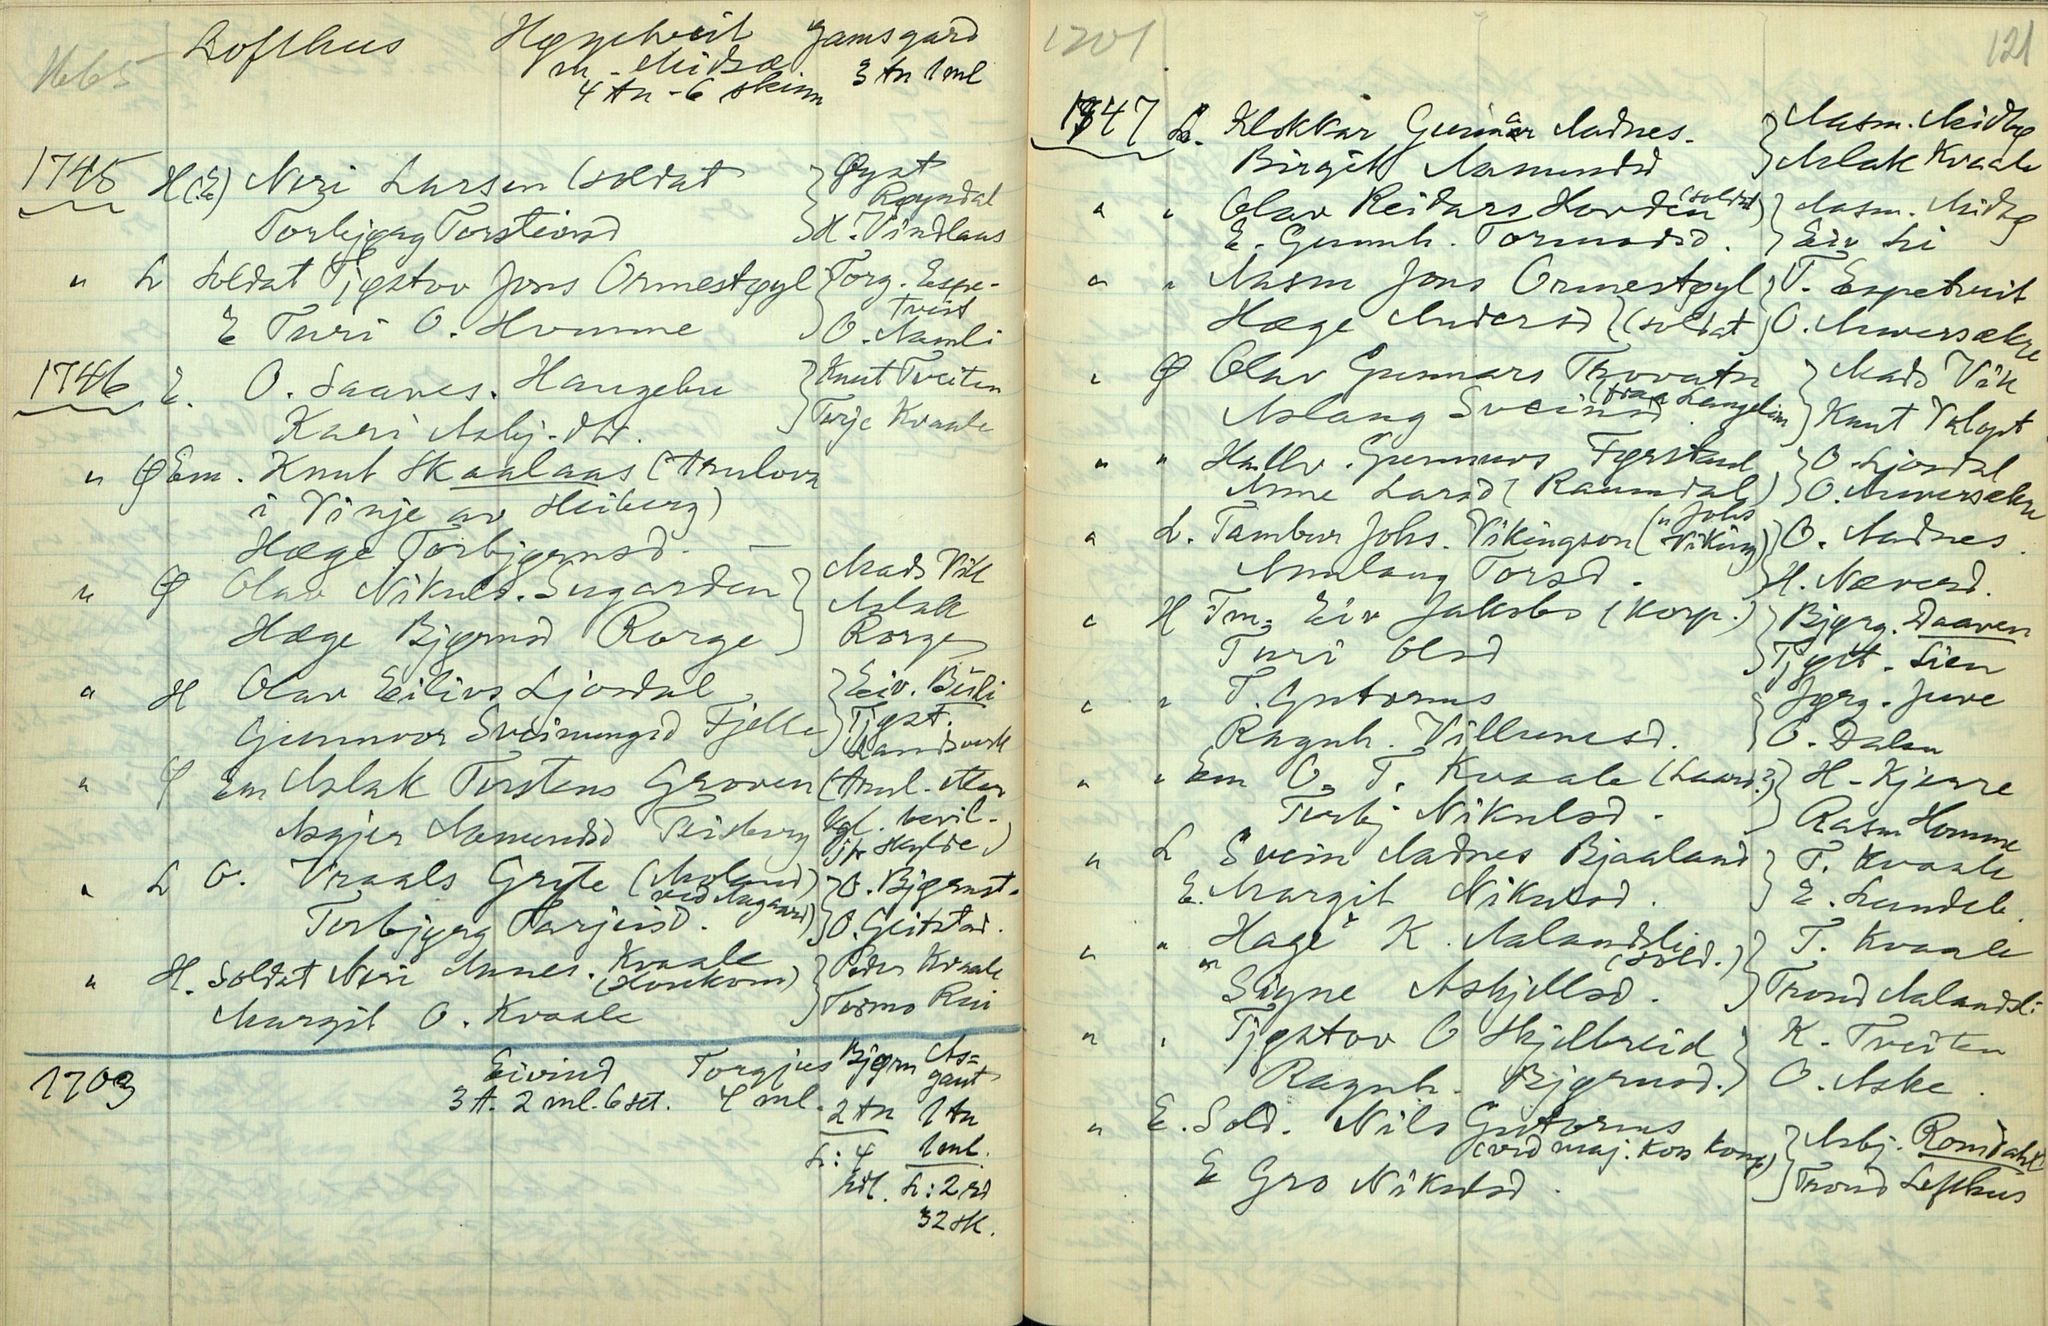 1665 Lofthus Høgetveit Jamsgard
m - Midbø 3 tn 1 ml
4 tn - 6 skinn
1745 H (E) Neri Larsen (soldat } Øyst Røyndal
Torbjørg Torsteinsd } H. Vindlaus
" L Soldat Tjøstov Jons Ormestøyl } Torg. Espe-
tveit
E Turi O. Homme } O. Namli
1746 E. O. Saaves. Haugebu } Knut Tveiten
Kari Asbj. dtr. } Terje Kvaale
" Ø Em. Knut Skaalaas (
i Vinje av Heiberg)
Hæge Torbjørnsd. —
" Ø Olav Nikuls. Sugarden } Mads Vik
Aslak
Hæge Bjørnsd Rorge } Rorge
" H Olav Eilivs Ljosdal } Eiv. Berli
Gunnvor Sveinungsd Fjelle } Tjøst.
Landsverk
" Ø Em Aslak Torstens Groven
Asgjer Aamundsd
" L O. Vraals Gryte (Moland) } O. Bjørnst.
ved Aagaard)
Torbjørg Tarjeisd. } O. Geitstad.
" H. Soldat Neri Aanes. Kvaale } Peder Kvaale
Margit O. Kvaale } Tormo Rui
1703 Eivind Torgjus Bjørn As-
gaut
3 t. 2 ml. 6 set. 4 ml. 2 tn 1 tn
L: 4 1 ml.
hdl. L: 2 rd
32 sk.
1701 121
1747 L. Klokkar Gunnar Aadnes. } Aasm. Midbø
Birgit Aamundsd } Aslak Kvaale
" " Olav Reidars Hovden (soldat) } Aasm. Midbø
E. Gunnh. Tormodsd. } Eiv Li
" " Aasm Jons Ormestøyl } T. Espetveit
Hæge Andersd (soldat } O. Aaversækre
" Ø Olav Gunnars Trovatn } Mads Vik
(fraa Langelim
Aslaug Sveinsd } Knut Kløpt
" " Hallv. Gunnars Fyrstaul } O. Ljosdal
Anne Larsd (Raumdal) } O. Aaversækre
" L. Tambur Johs. Vikingson (" Johs Viking) } O. Aadnes.
Aanlaug Torsd. } H. Næversd.
" H Fm. Eiv Jakobs (Korp.) } Bjørg. Daaren
Turi Olsd } Tjøst. Lien
" " T. Gutorms } Jørg. Juve
Ragnh. Villumsd. } O. Dalen
" " Em O. T. Kvaale (Laard?) } H. Kjerre
Torbj Nikulsd. } Rasm Homme
" L Svein Aadnes Bjaaland } T. Kvaale
E. Margit Nikulsd. } E. Lundeb.
" " Hage K. Aalandsli (sold.) } T. Kvaale
Signe Askjellsd. } Trond Aalandsli
" " Tjøstov O Skjelbreid } K. Tveiten
Ragnh. Bjørnsd. } O. Aske.
" E. Sold. Nils Gutorms
(ved maj. Kos Komp) } Asbj. Romdahl
E Gro Nikulsd. } Trond Lofthus